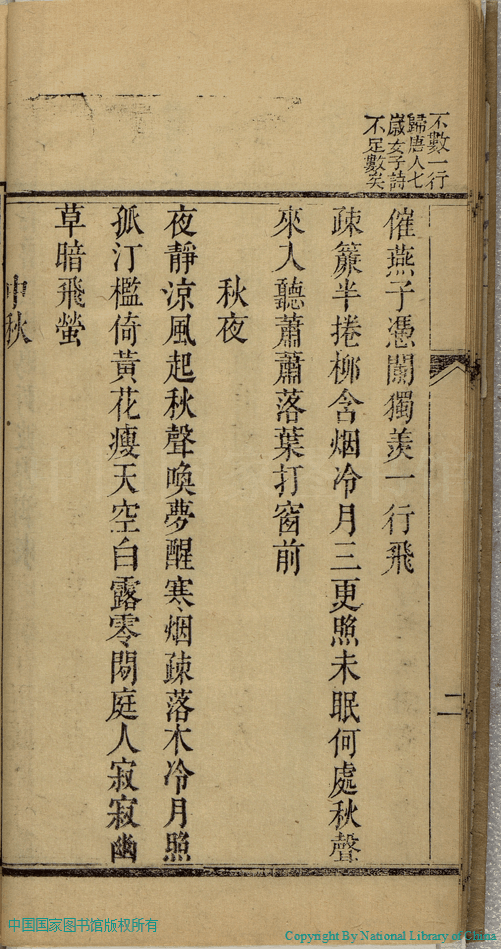 不數一行
歸唐人七
歲女子詩
不足數矣
催燕子憑闌獨羨一行飛
疎簾半捲柳含烟冷月三更照未眠何處秋聲
來人聽蕭蕭落葉打窗前
秋夜
夜靜涼風起秋聲喚夢醒寒烟疎落木冷月照
孤汀檻倚黃花瘦天空白露零閒庭人寂寂幽
草暗飛螢
中秋
二
中国国家图书馆版权所有
Copyright By National Library of China